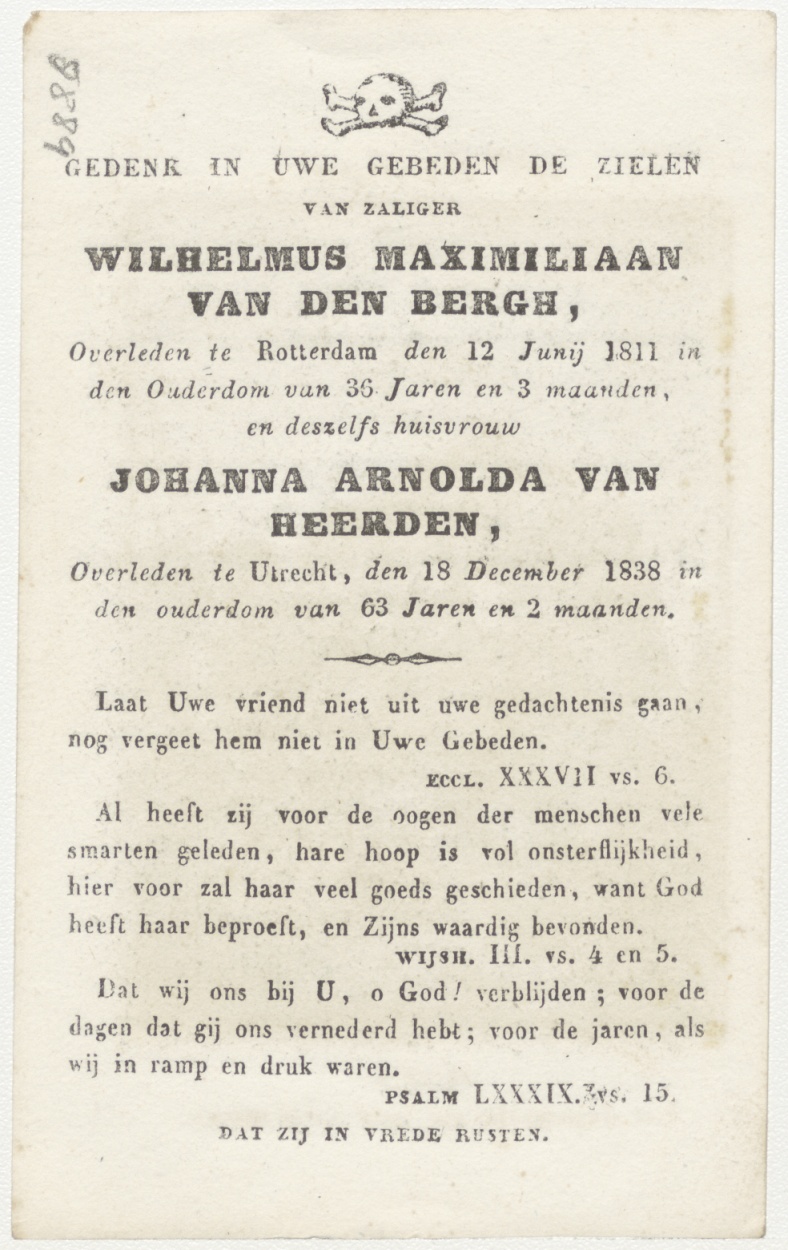 GEDENK IN UWE GEBEDEN DE ZIELEN
VAN ZALIGER
WILHELMUS MAXIMILIAAN
VAN DEN BERGH,
Overleden te Rotterdam den 12 Junij 1811 in
den Ouderdom van 36 Jaren en 3 maanden,
en deszelfs huisvrouw
JOHANNA ARNOLDA VAN
HEERDEN,
Overleden te Utrecht, den 18 December 1838 in
den ouderdom van 63 Jaren en 2 maanden.
Laat Uwe vriend niet uit uwe gedachtenis gaan,
nog vergeet hem niet in Uwe Gebeden.
ECCL. XXXVII vs. 6.
Al heeft zij voor de oogen der menschen vele
smarten geleden, hare hoop is vol onsterflijkheid,
hier voor zal haar veel goeds geschieden, want God
heeft haar beproeft, en Zijns waardig bevonden.
WIJSH. III. vs. 4 en 5.
Dat wij ons bij U, o God! verblijden; voor de
dagen dat gij ons vernederd hebt; voor de jaren, als
wij in ramp en druk waren.
PSALM LXXXIX. vs. 15.
DAT ZIJ IN VREDE RUSTEN.